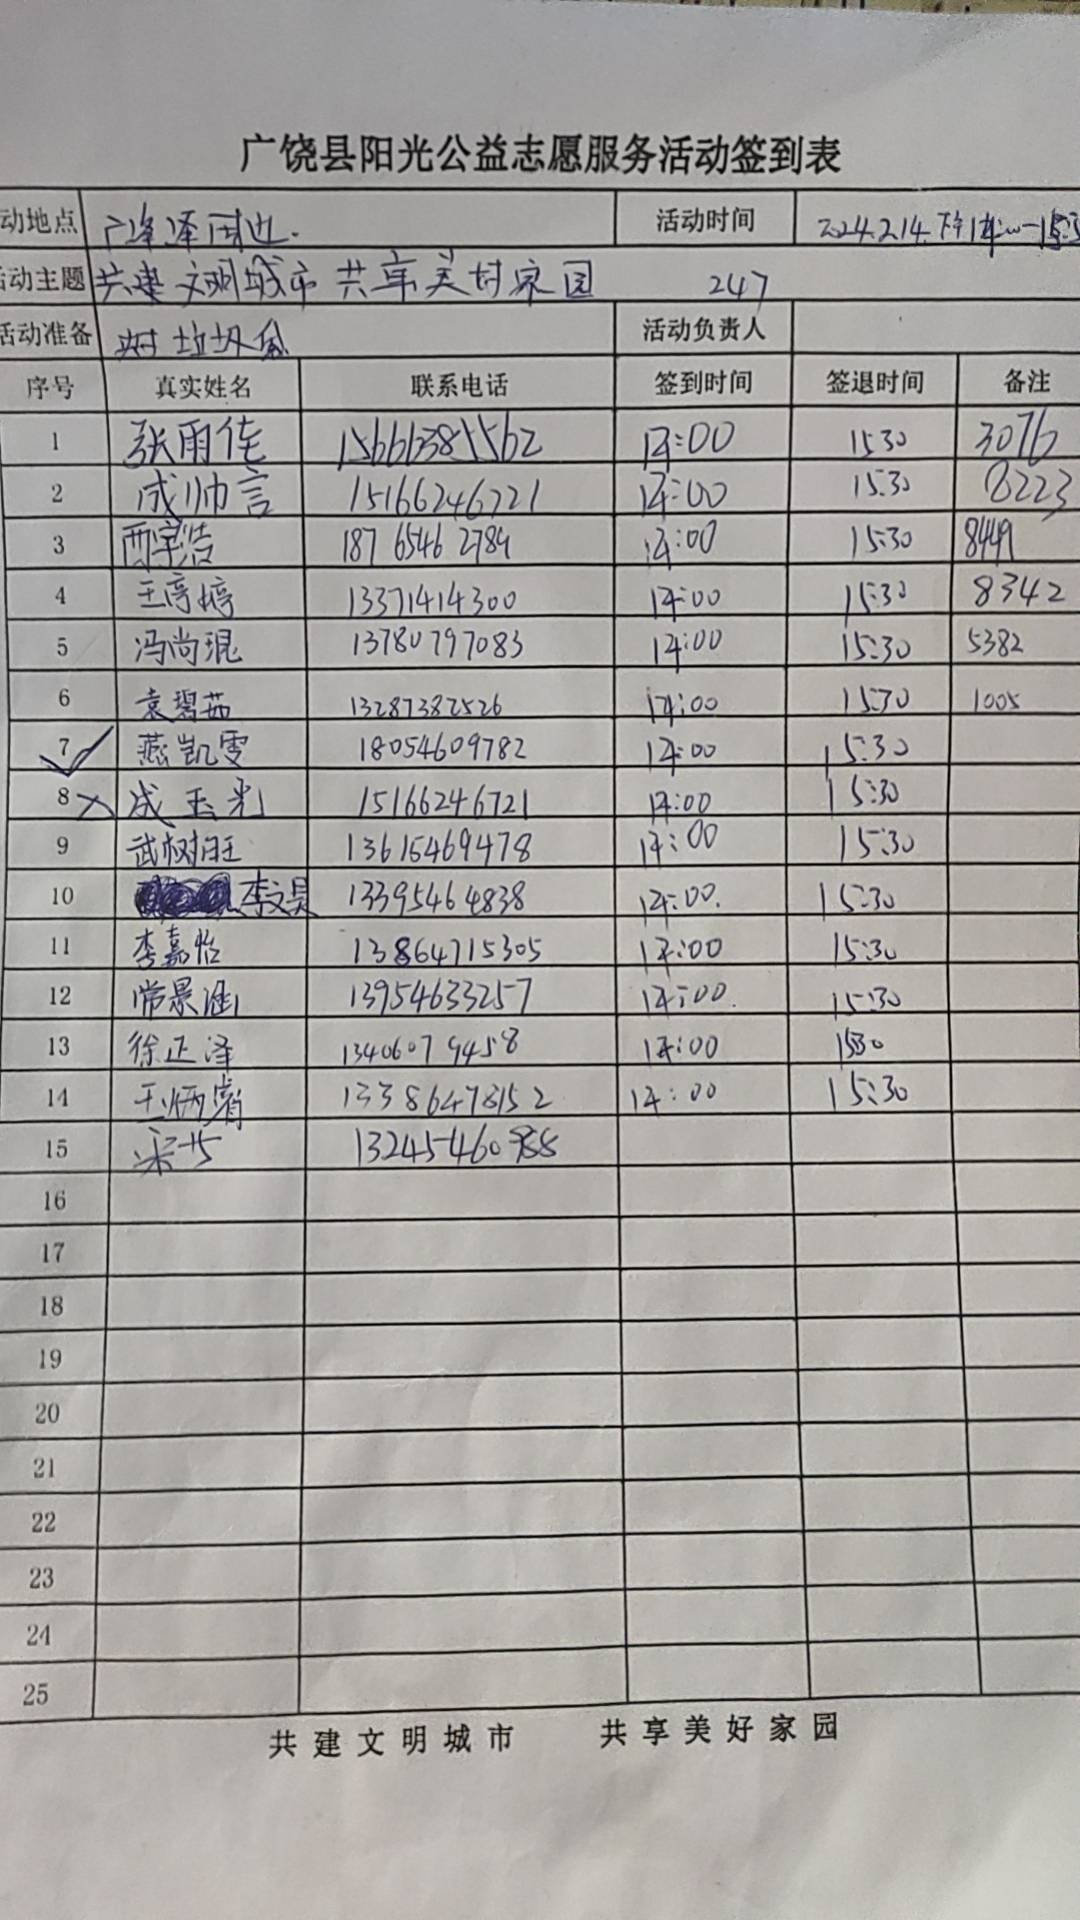 广饶县阳光公益志愿服务活动签到表
动地点 周边. 活动时间 2024.2.14.下午
活动主题 共建文明城市 共享美好家园 247
活动准备 垃圾袋 活动负责人
序号 真实姓名 联系电话 签到时间 签退时间 备注
1 张雨佳 15666385562 14:00 15:30 3076
2 成帅言 15166246721 14:00 15:30 8223
3 宇浩 187 6546 2789 14:00 15:30 8449
4 王婷婷 13371414300 14:00 15:30 8342
5 冯尚琨 13780797083 14:00 15:30 5382
6 袁碧茹 13287382526 14:00 15:30 1005
7 燕凯雯 18054609782 14:00 15:30
8 成玉光 15166246721 14:00 15:30
9 武树旺 13615469478 14:00 15:30
10 李文昊 13395464838 14:00. 15:30
11 李嘉怡 13864715305 14:00 15:30
12 常景涵 13954633257 14:00. 15:30
13 徐正泽 13406079458 14:00 1530
14 王炳 13386478152 14:00 15:30
15 13245460988
16
17
18
19
20
21
22
23
24
25
共建文明城市 共享美好家园